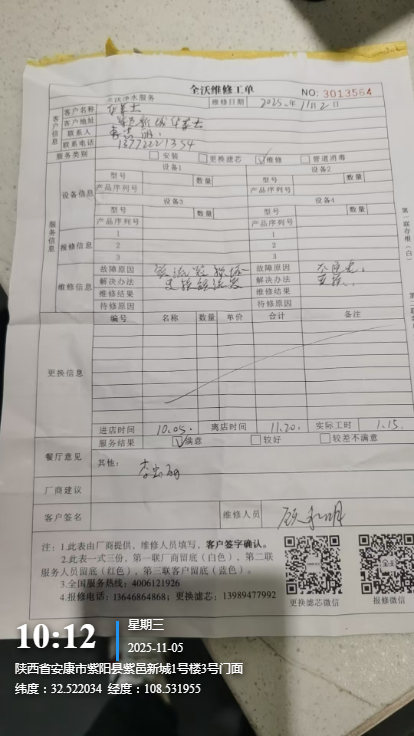 全沃维修工单
NO: 3013564
全沃净水服务
维修日期 2025年11月2日
客户信息
客户名称 华莱士
客户地址
联系人
联系电话
服务类别 安装 更换滤芯 维修 管道消毒
服务信息
设备信息
设备1 设备2
型号 数量 型号 数量
产品序列号 产品序列号
设备3 设备4
型号 数量 型号 数量
产品序列号 产品序列号
报修信息
1 1
2 2
3 3
维修信息
故障原因 故障原因
解决办法 解决办法
维修结果 维修结果
待修原因 待修原因
更换信息
编号 名称 数量 单价 合计 备注
进店时间 10.05. 离店时间 11.20. 实际工时 1.15.
服务结果 满意 较好 较差不满意
餐厅意见
其他:
厂商建议
客户签名 维修人员
注: 1.此表由厂商提供，维修人员填写，客户签字确认。
2.此表一式三份，第一联厂商留底（白色）、第二联
服务人员留底（红色）、第三联客户留底（蓝色）。
3.全国服务热线: 4006121926
4.报修电话: 13646864868; 更换滤芯: 13989477992
更换滤芯微信 报修微信
10:12
星期三
2025-11-05
陕西省安康市紫阳县紫邑新城1号楼3号门面
纬度：32.522034 经度：108.531955